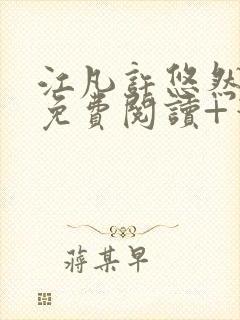 江凡許悠然
免費閱讀+
蔣某早